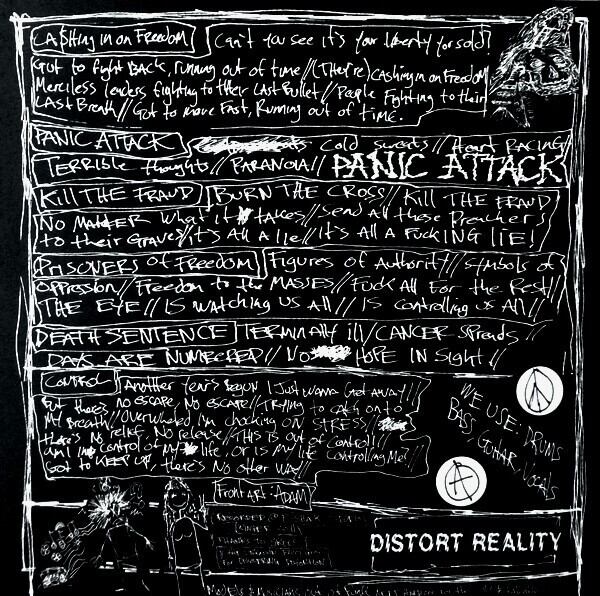 CA$Hing in on Freedom Can't you see it's your liberty for sold!
Got to fight BACK, running out of time // (They're) Cashing in on Freedom
Merciless leaders fighting to their LAST Bullet // People Fighting to their
LAST Breath // Got to move Fast, Running out of time.
PANIC ATTACK Cold sweats // Heart RACING
TERRIBLE thoughts // PARANOIA // PANIC ATTACK
Kill THE FRAUD BURN THE CROSS // Kill THE FRAUD
NO MATTER what it takes // Send All these Preachers
to their Graves // it's All A lie // It's All A FucKING LIE!
PRISONERS of FREEDOM Figures of Authority // Symbols of
Oppression // Freedom to the MASSES // Fuck All For the Rest //
THE EYE // IS watching us All // IS controlling us All //
DEATH SENTENCE TERMINAlly ill / CANCER Spreads
DAYS ARE NUMBERED // NO HOPE IN Sight //
CONTROL Another years Begun I Just wanna Get Away!!
But there's no escape, No escape // TRYING to catch onto
My Breath // Overwhelmed, I'm choking on STRESS //
there's No relief, No release // THIS is out of Control!
Am I in control of my life, or is my life controlling Me?
Got to KEEP UP, there's NO other WAY //
WE USE: DRUMS
BASS, GUITAR, VOCALS
Front ART: ADAM
DISTORT REALITY